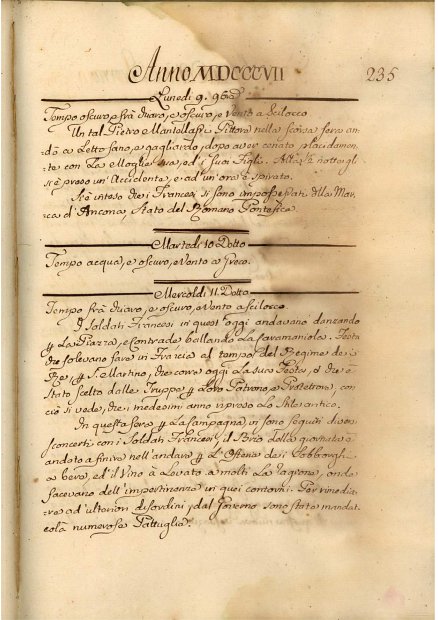 Anno MDCCCVII
235
Lunedi 9. 9bre
Tempo oscuro, e frà Chiaro, e oscuro, e Vento a Scilocco
Un tal Pietro Mantellassi Pittore nella scorsa sera an-
dò a Letto sano, e gagliardo, dopo aver cenato placidamen-
te con La Moglie sua, ed i suoi Figli. Alla notte gli
si è preso un' Accidente, e ad' un' ora è spirato.
Si è inteso che i Francesi si sono impossessati della Mar-
ca d'Ancona, stato del Romano Pontefice.
Martedi 10 Detto
Tempo acqua, e oscuro, e Vento a Greco.
Mercoldi 11. Detto
Tempo frà Chiaro, e oscuro, e Vento a Scilocco
I Soldati Francesi in quest' oggi andavano danzando
p La Piazza, e Contrade ballando La Caramaniola. Festa
che solevano fare in Francia al tempo del Regime dei
Re, p S. Martino, che corre oggi La sua Festa, ed è
stato scelto dalle Truppe p Loro Patrono, e Protettore, con
ciò si vede, che i medesimi anno ripreso Lo stile antico.
In questa sera p La Campagna, si sono seguiti diversi
sconcerti con i Soldati Francesi, il Brio della giornata è
andato a finire nell' andare p L'Osterie dei Sobborghi
a bere, ed' il Vino à Levato a molti La ragione, onde
facevano dell' impertinenze in quei contorni. Per rimedia-
re ad' ulteriori disordini, dal Governo sono state mandate
colà numerose Pattuglie.